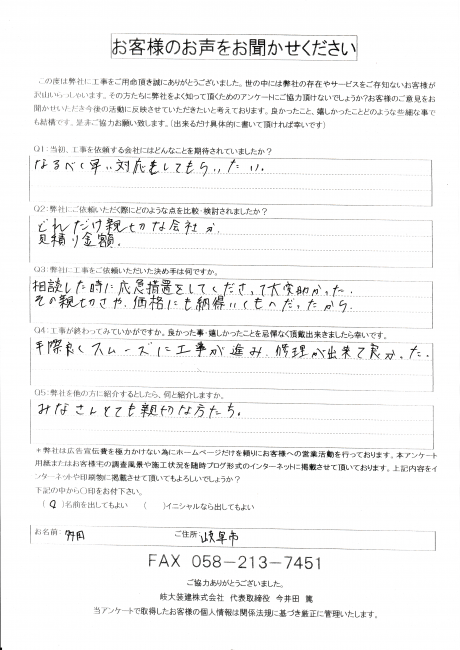 お客様のお声をお聞かせください
この度は弊社に工事をご用命頂き誠にありがとうございました。世の中には弊社の存在やサービスをご存知ないお客様が
沢山いらっしゃいます。その方たちに弊社をよく知って頂くためのアンケートにご協力頂けないでしょうか?お客様のご意見をお
聞かせいただき今後の活動に反映させていただきたいと考えております。良かったこと、嬉しかったことどのような些細な事で
も結構です。是非ご協力お願い致します。(出来るだけ具体的に書いて頂ければ幸いです)
Q1:当初、工事を依頼する会社にはどんなことを期待されていましたか?
なるべく早い対応をしてもらいたい。
Q2:弊社にご依頼いただく際にどのような点を比較・検討されましたか?
どれだけ親切な会社か、
見積り金額。
Q3:弊社に工事をご依頼いただいた決め手は何ですか。
相談した時に応急措置をしてくださって大変助かった。
その親切さや、価格にも納得いくものだったから
Q4:工事が終わってみていかがですか。良かった事・嬉しかったことを忌憚なく頂戴出来きましたら幸いです。
手際良くスムーズに工事が進み、修理が出来て良かった。
Q5:弊社を他の方に紹介するとしたら、何と紹介しますか。
みなさんとても親切な方たち。
*弊社は広告宣伝費を極力かけない為にホームページだけを頼りにお客様への営業活動を行っております。本アンケート
用紙またはお客様宅の調査風景や施工状況を随時ブログ形式のインターネットに掲載させて頂いております。上記内容をイ
ンターネットや印刷物に掲載させて頂いてもよろしいでしょうか?
下記の中から〇印をお付下さい。
(○)名前を出してもよい ( )イニシャルなら出してもよい
お名前: ご住所: 岐阜市
FAX 058-213-7451
ご協力ありがとうございました。
岐大装建株式会社 代表取締役 今井田 篤
当アンケートで取得したお客様の個人情報は関係法規に基づき厳正に管理いたします。